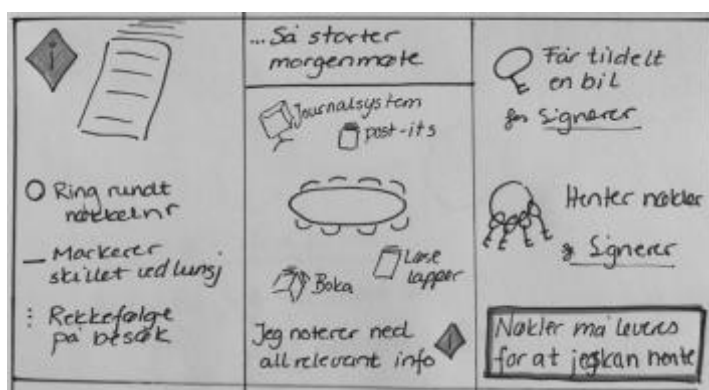 i
Ring rundt
nøkkelnr
Markerer
skillet ved lunsj
Rekkefølge
på besøk
...Så starter
morgenmøte
Journalsystem
post-its
Boka
Løse
lapper
Jeg noterer ned
all relevant info
i
Får tildelt
en bil
Signerer
Henter nøkler
Signerer
Nøkler må leveres
for at jeg kan hente